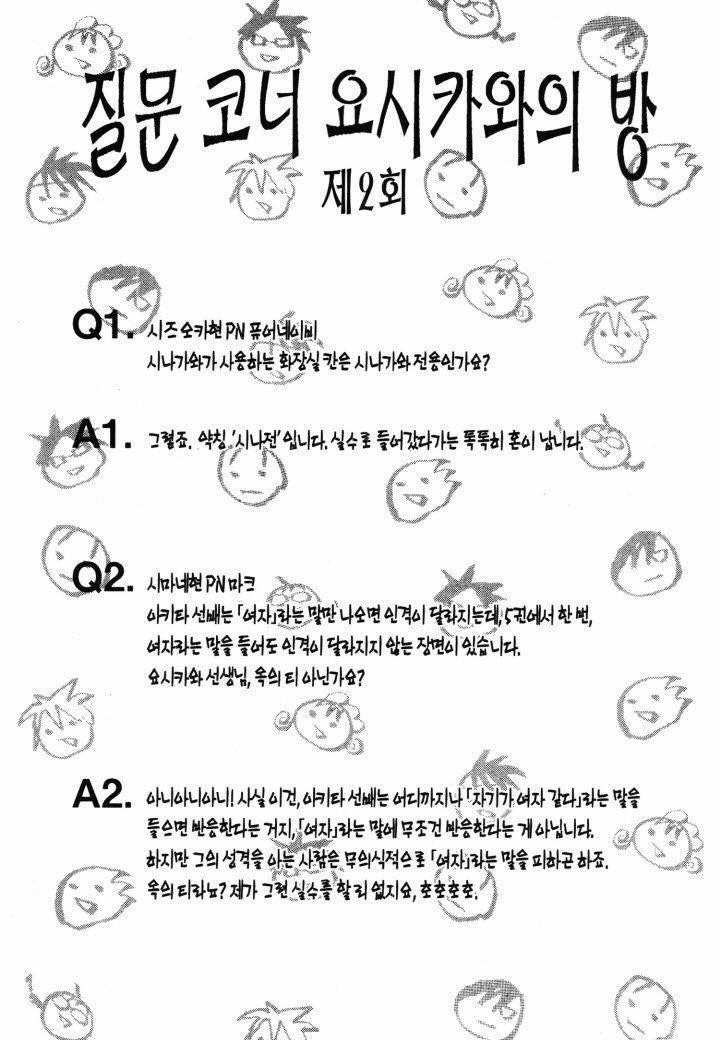 질문 코너 요시카와의 방
제2회
Q1. 시즈오카현 PN 퓨어네이비
시나가와가 사용하는 화장실 칸은 시나가와 전용인가요?
A1. 그렇죠. 약칭 '시나전'입니다. 실수로 들어갔다가는 톡톡히 혼이 납니다.
Q2. 시마네현 PN 마크
아키타 선배는 「여자」라는 말만 나오면 인격이 달라지는데, 5권에서 한 번,
여자라는 말을 들어도 인격이 달라지지 않는 장면이 있습니다.
요시카와 선생님, 옥의 티 아닌가요?
A2. 아니아니아니! 사실 이건, 아키타 선배는 어디까지나 「자기가 여자 같다」라는 말을
들으면 반응한다는 거지, 「여자」라는 말에 무조건 반응한다는 게 아닙니다.
하지만 그의 성격을 아는 사람은 무의식적으로 「여자」라는 말을 피하곤 하죠.
옥의 티라뇨? 제가 그런 실수를 할 리 없지요, 호호호호.